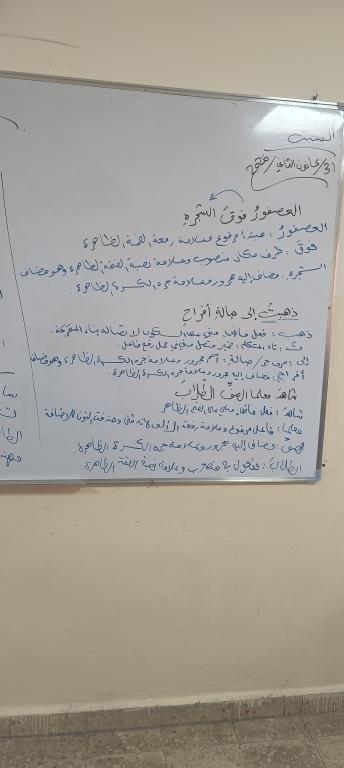 السبت
31/كانون الثاني/
العصفورُ فوقَ الشجرةِ
العصفورُ: مبتدأ مرفوع وعلامة رفعه الضمة الظاهرة
فوقَ: ظرف مكان منصوب وعلامة نصبه الفتحة الظاهرة وهو مضاف
الشجرةِ: مضاف إليه مجرور وعلامة جره الكسرة الظاهرة.
ذهبتُ إلى صالة أفراحٍ
ذهب: فعل ماضٍ مبني على السكون لاتصاله بتاء المتحركة.
تُ: تاء المتكلم: ضمير متصل مبني في محل رفع فاعل.
إلى: حرف جر/ صالة: اسم مجرور وعلامة جره الكسرة الظاهرة وهو مضاف
أفراحٍ: مضاف إليه مجرور وعلامة جره الكسرة الظاهرة.
شاهدَ معلما الصفِّ الطلّابَ
شاهدَ: فعل ماضٍ مبني على الفتح الظاهر
معلما: فاعل مرفوع وعلامة رفعه الألف لأنه مثنى وحذفت النون للإضافة
الصفِّ: مضاف إليه مجرور وعلامة جره الكسرة الظاهرة.
الطلابَ: مفعول به منصوب وعلامة نصبه الفتحة الظاهرة